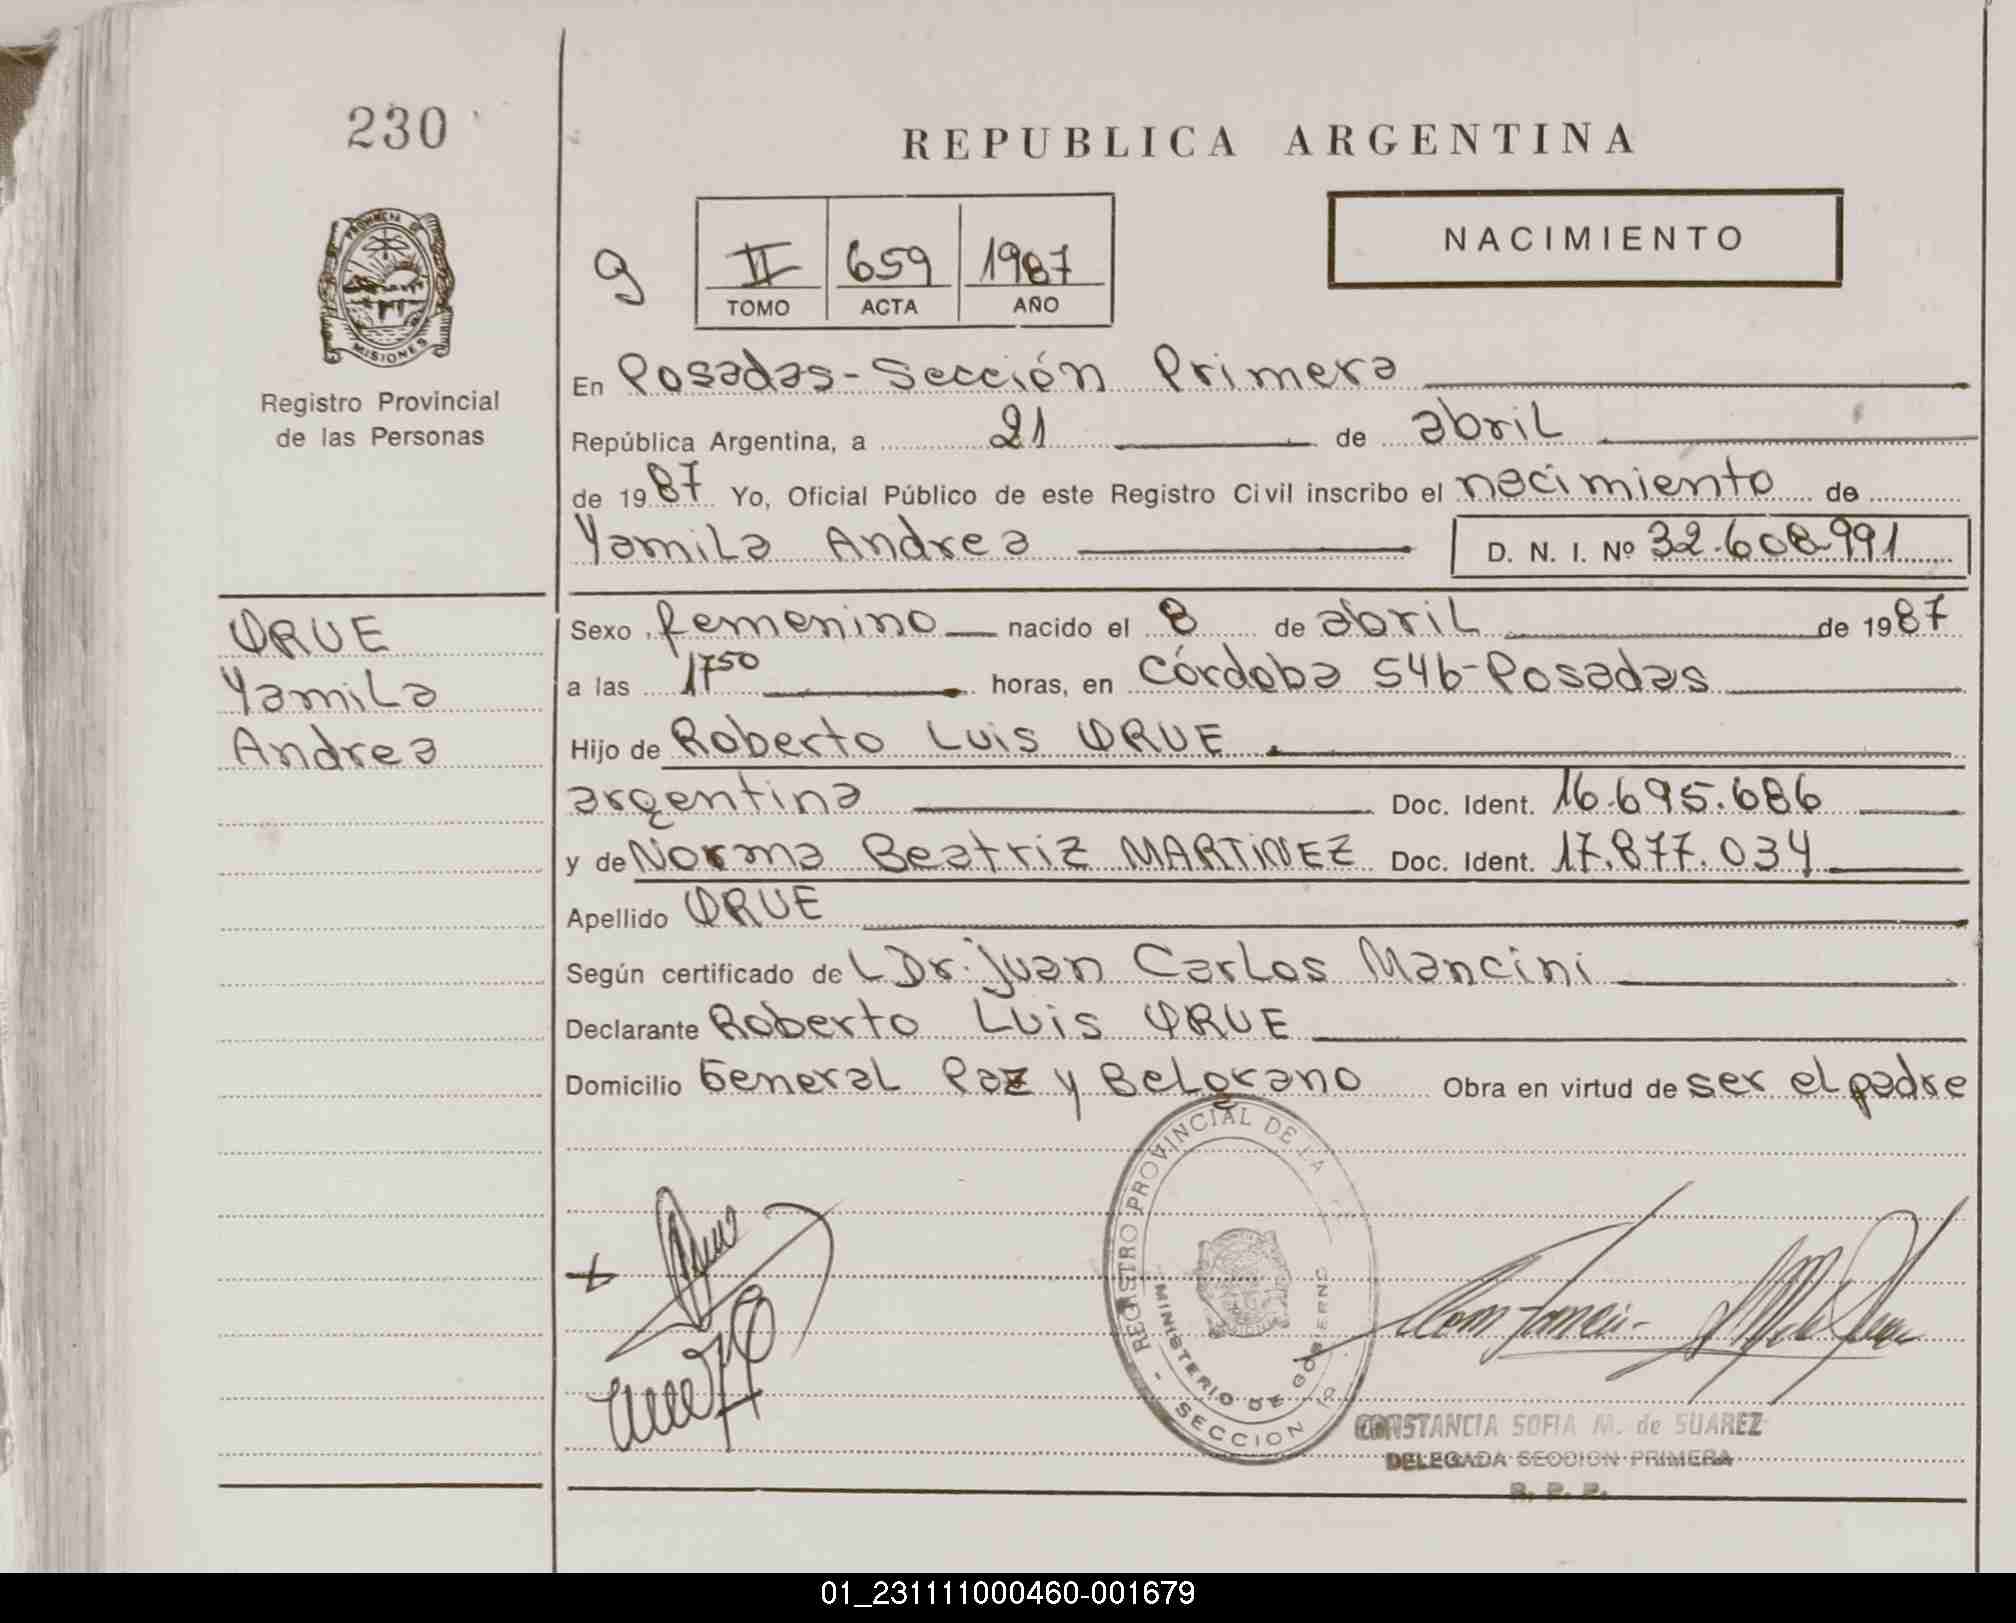 230
REPUBLICA ARGENTINA
NACIMIENTO
9
II 659 1987
TOMO ACTA AÑO
PROVINCIA DE
MISIONES
Registro Provincial
de las Personas
En Posadas-Sección Primera
República Argentina, a 21 de abril
de 1987 Yo, Oficial Público de este Registro Civil inscribo el nacimiento de
Yamila Andrea D. N. I. Nº 32.608.991
ORUE
Yamila
Andrea
Sexo femenino nacido el 8 de abril de 1987
a las 17⁵⁰ horas, en Córdoba 546-Posadas
Hijo de Roberto Luis ORUE
argentina Doc. Ident. 16.695.686
y de Norma Beatriz MARTINEZ Doc. Ident. 17.877.034
Apellido ORUE
Según certificado de L Dr. Juan Carlos Mancini
Declarante Roberto Luis ORUE
Domicilio General Paz y Belgrano Obra en virtud de ser el padre
- REGISTRO PROVINCIAL DE LA
MINISTERIO DE GOBIERNO
- SECCION 1a
CONSTANCIA SOFIA M. de SUAREZ
DELEGADA SECCION PRIMERA
R. P. P.
01_231111000460-001679